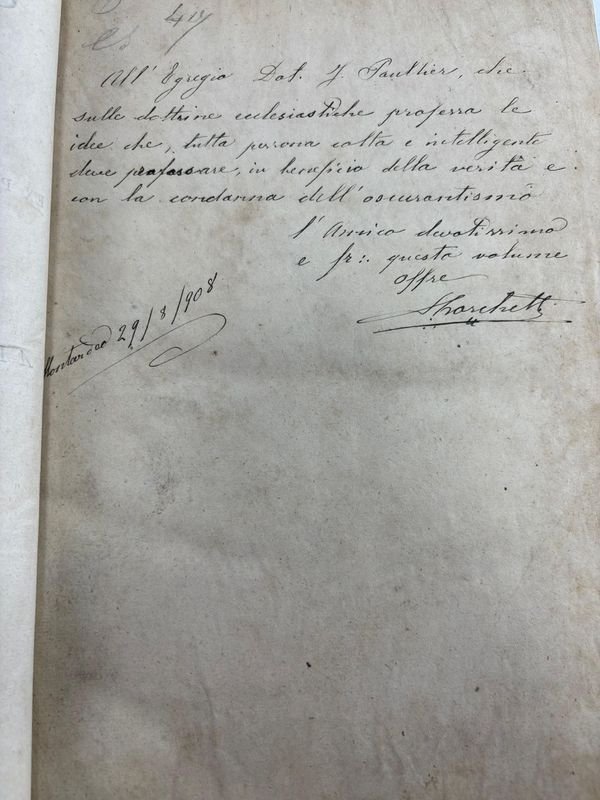 417
All' Egregio Dot. J. Paulhier, che
sulle dottrine ecclesiastiche professa le
idee che, tutta persona colta e intelligente
deve professare, in beneficio della verità e
con la condanna dell'oscurantismo
l'Amico devotissimo
e fr∴ questo volume
offre
29/8/908